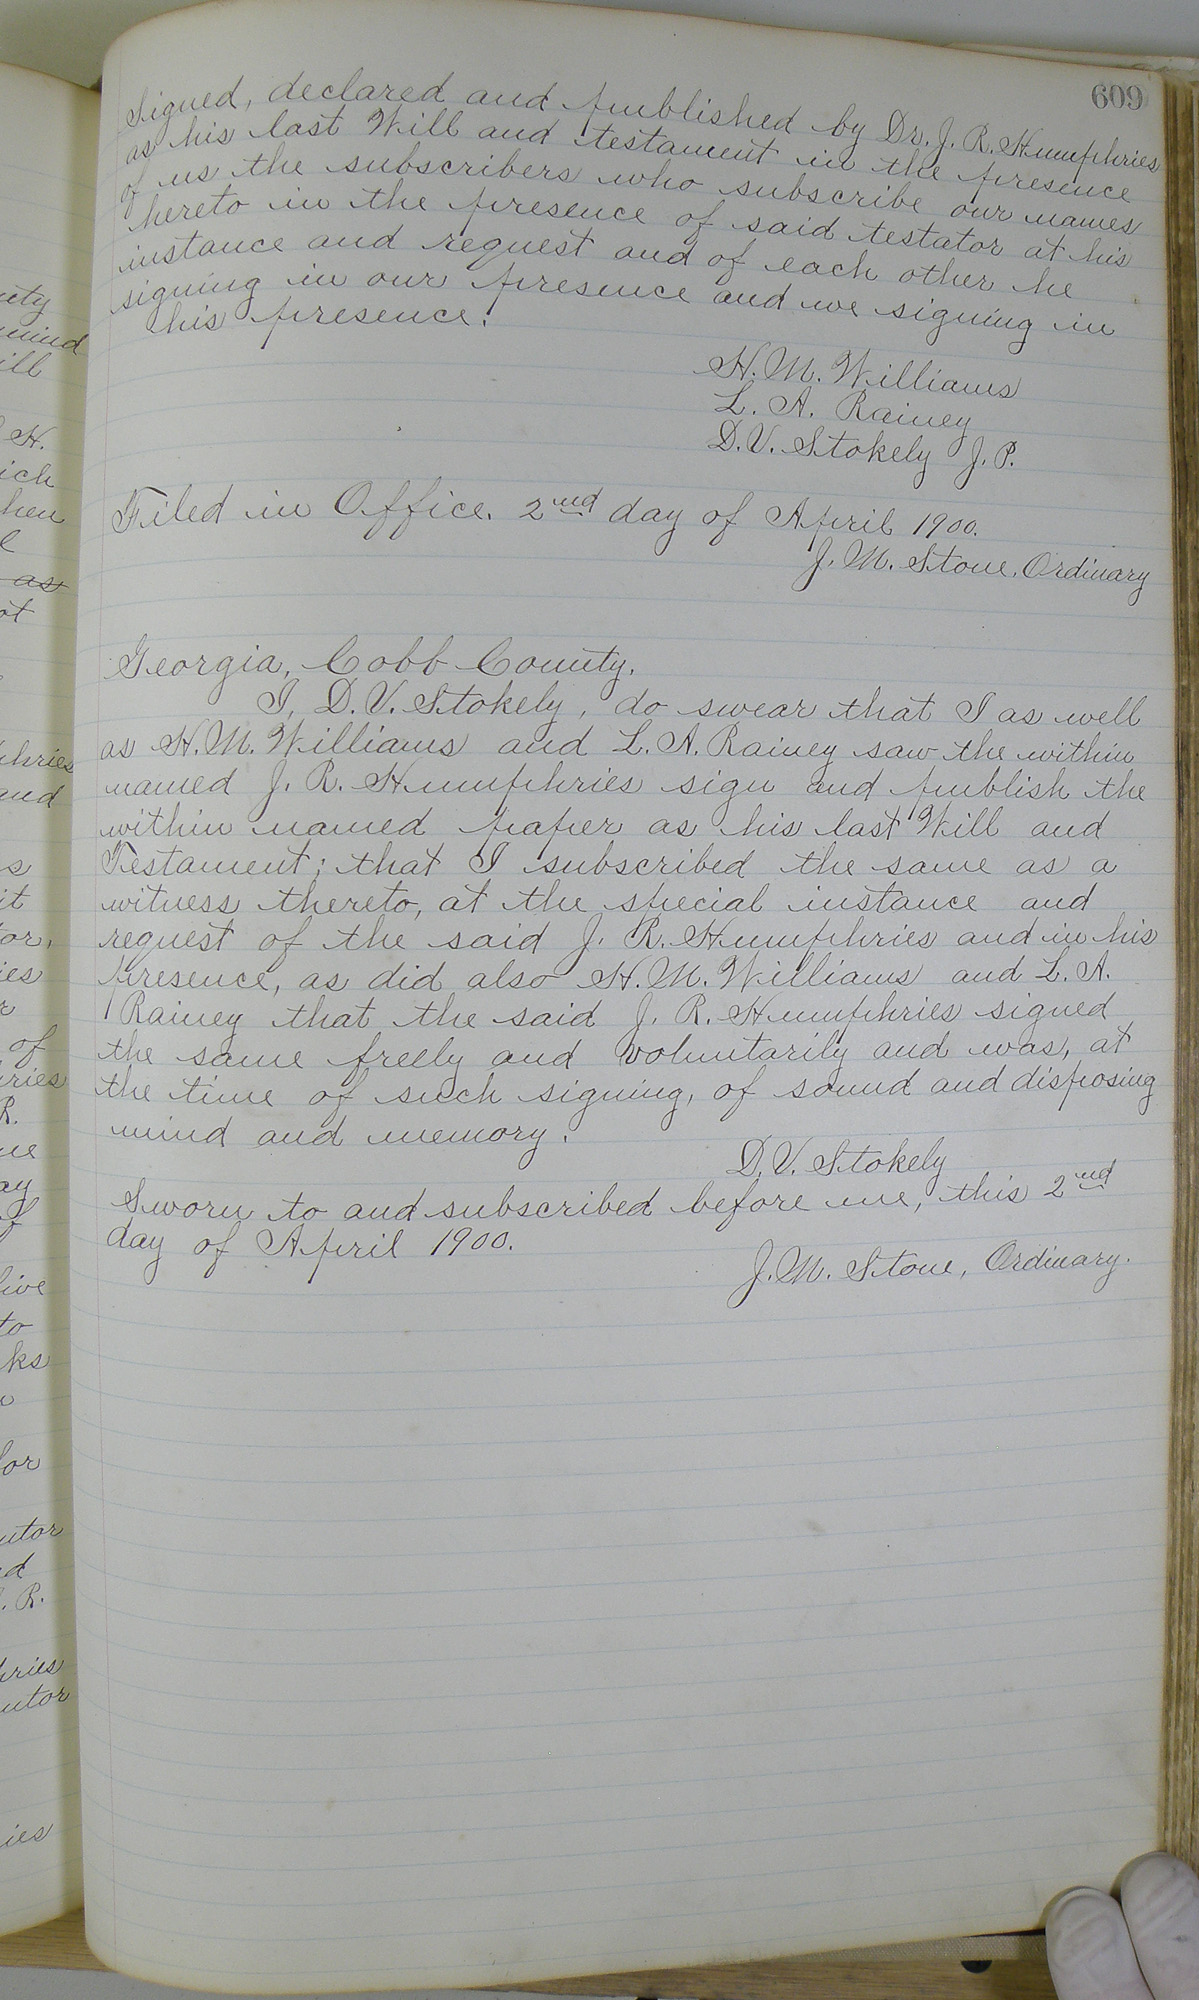 609
Signed, declared and published by Dr. J. R. Humphries
as his last Will and testament in the presence
of us the subscribers who subscribe our names
hereto in the presence of said testator at his
instance and request and of each other he
signing in our presence and we signing in
his presence.
H. M. Williams
L. A. Rainey
D. V. Stokely J. P.
Filed in Office. 2nd day of April 1900.
J. M. Stone, Ordinary
Georgia, Cobb County.
I, D. V. Stokely, do swear that I as well
as H. M. Williams and L. A. Rainey saw the within
named J. R. Humphries sign and publish the
within named paper as his last Will and
Testament; that I subscribed the same as a
witness thereto, at the special instance and
request of the said J. R. Humphries and in his
presence, as did also H. M. Williams and L. A.
Rainey that the said J. R. Humphries signed
the same freely and voluntarily and was, at
the time of such signing, of sound and disposing
mind and memory.
D. V. Stokely
Sworn to and subscribed before me, this 2nd
day of April 1900.
J. M. Stone, Ordinary.